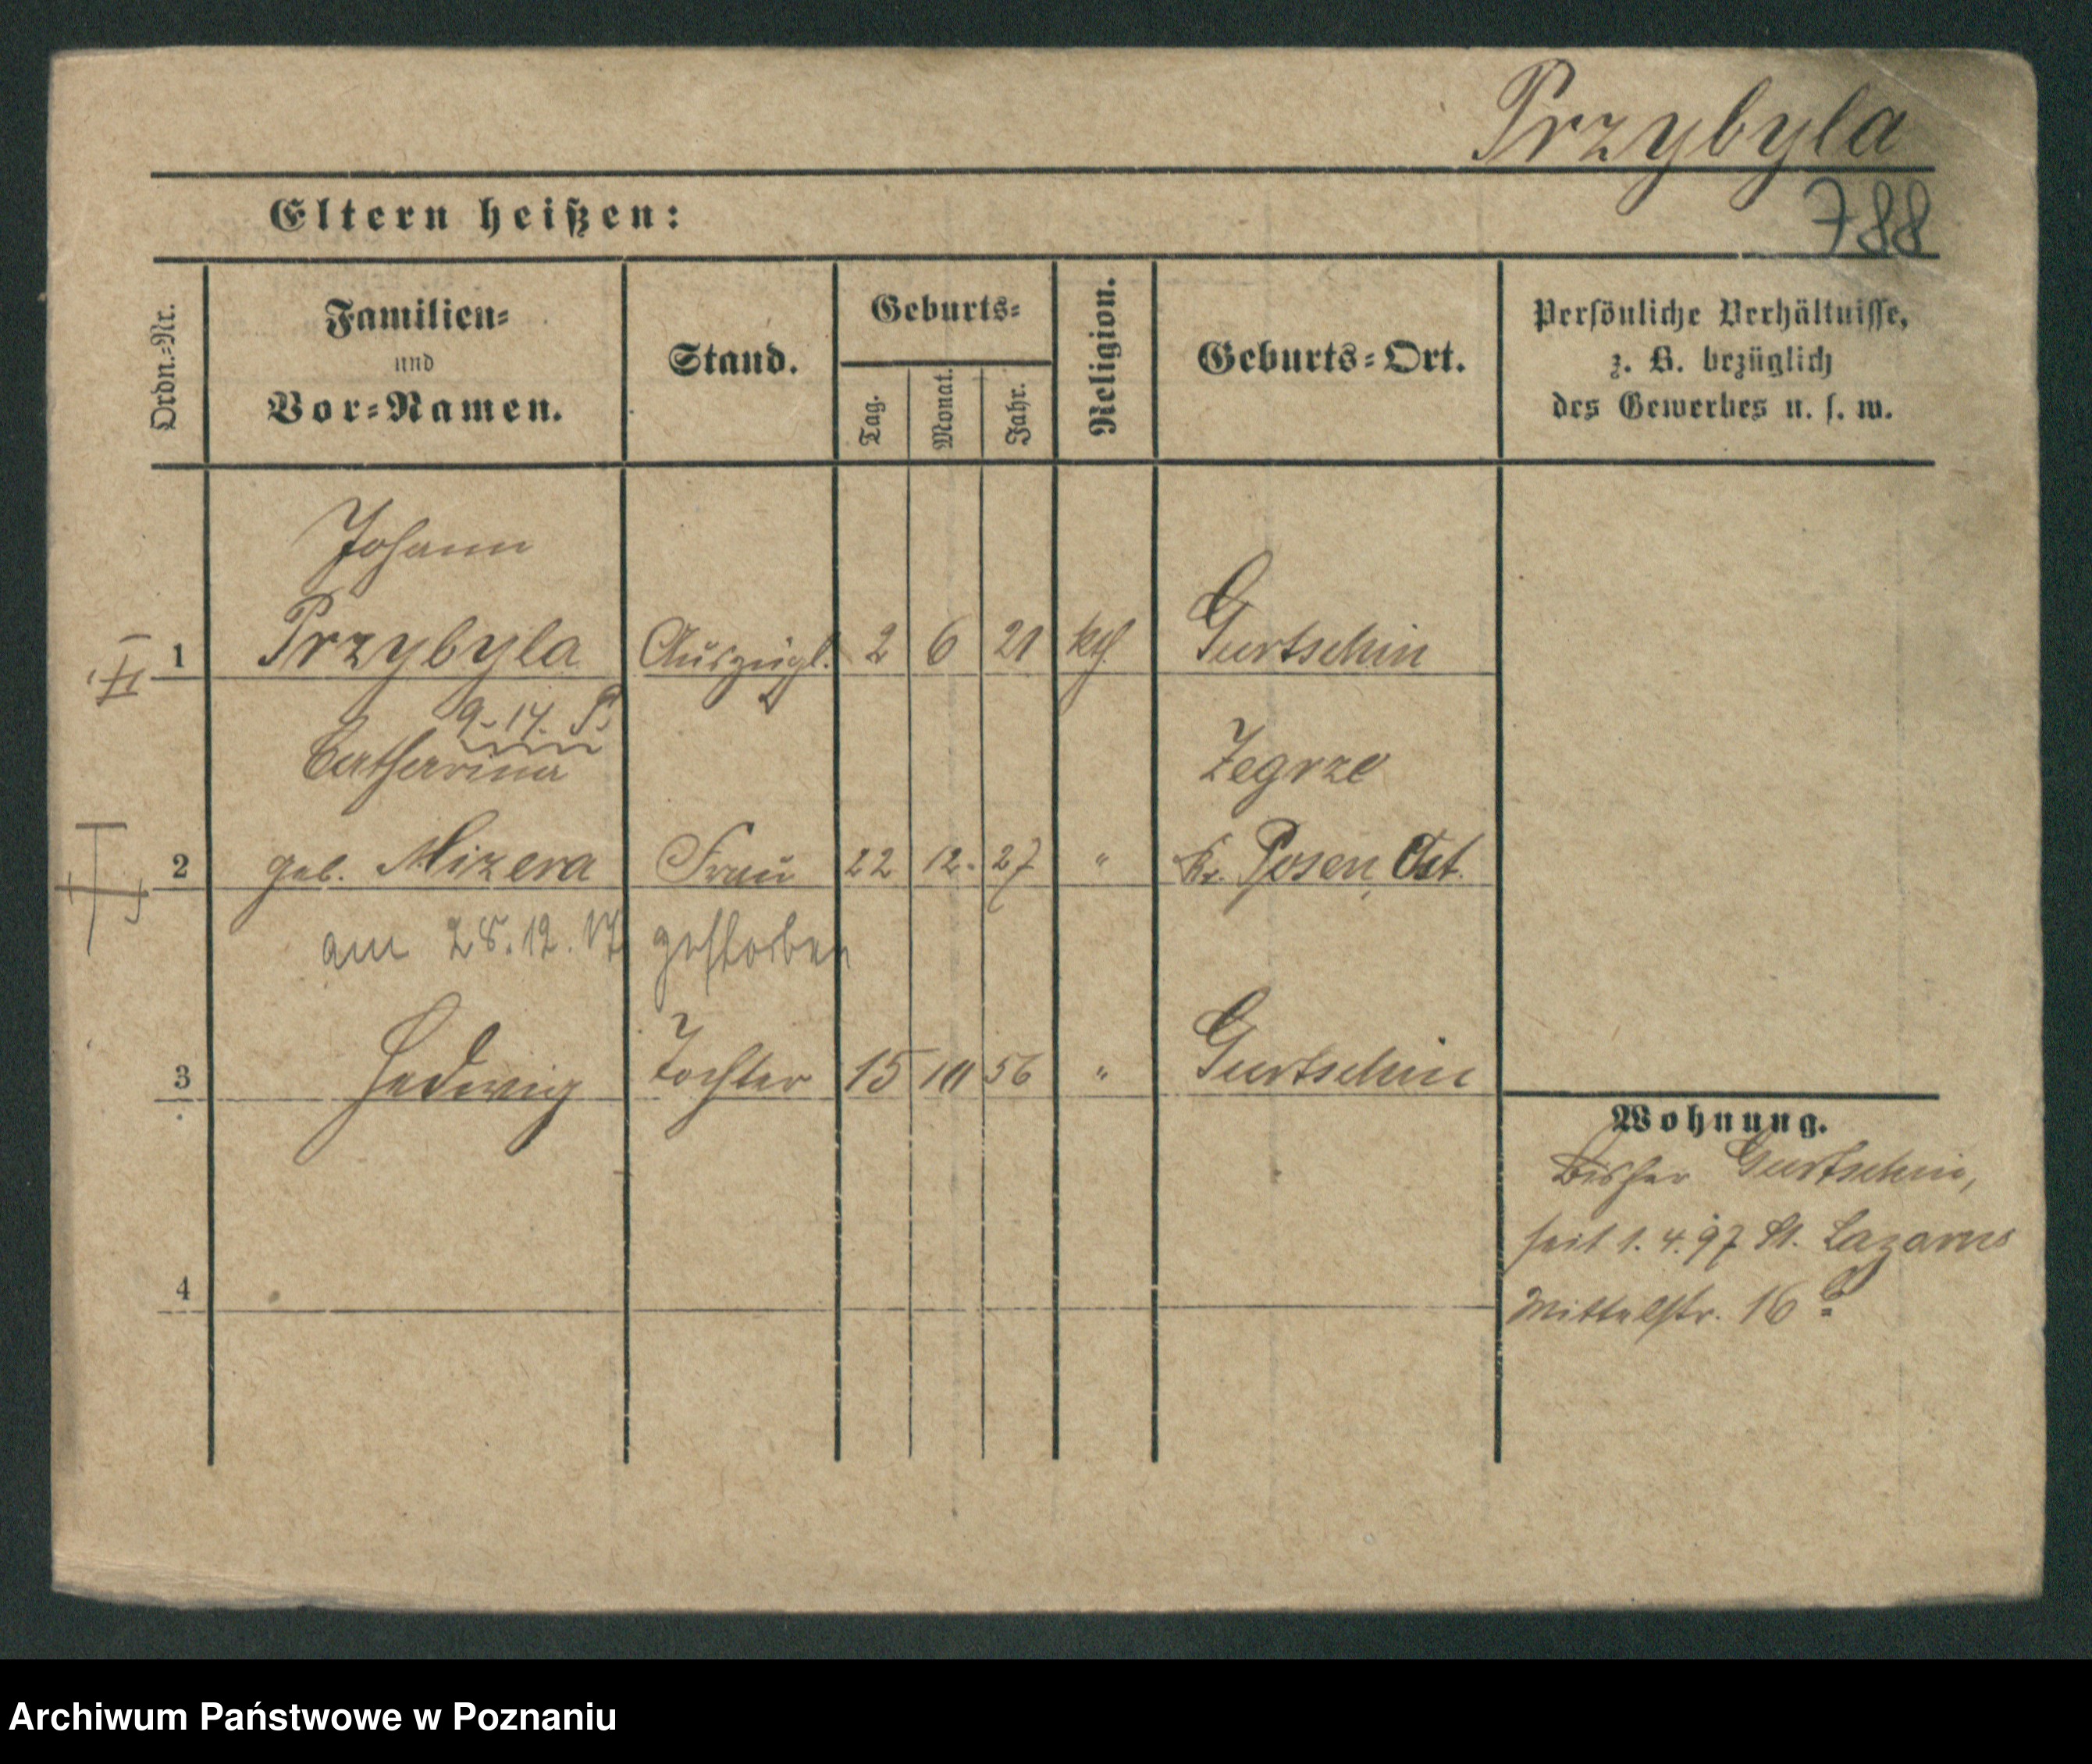 Przybyla
788
Eltern heißen:
Ordn.-Nr.
Familien-
und
Vor-Namen.
Stand.
Geburts-
Tag.
Monat.
Jahr.
Religion.
Geburts-Ort.
Persönliche Verhältnisse,
z. B. bezüglich
des Gewerbes u. s. w.
Johann
1 Przybyla Auszügl. 2 6 21 kth. Gurtschin
9. 14.
Catharina Zegrze
2 geb. Mizera Frau 22 12. 27 " Kr. Posen, Ost.
am 28.12.17 gestorben
3 Hedwig Tochter 15 10 56 " Gurtschin
Wohnung.
Bisher Gurtschin,
seit 1.4.97 St. Lazarus
4
Mittelstr. 16
Archiwum Państwowe w Poznaniu